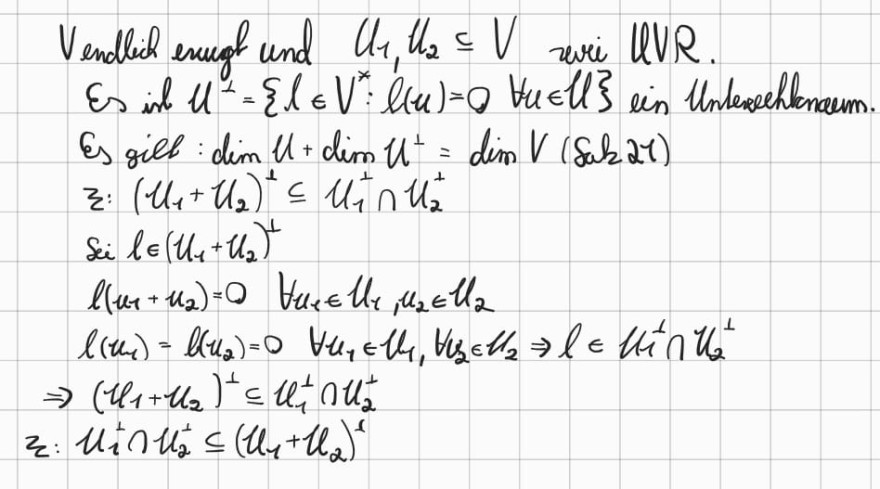 V endlich erzeugt und U₁, U₂ ⊆ V zwei UVR.
Es ist U^⊥ = {l ∈ V*: l(u)=0 ∀u∈U} ein Untervektorraum.
Es gilt: dim U + dim U^⊥ = dim V (Satz 21)
Z: (U₁+U₂)^⊥ ⊆ U₁^⊥ ∩ U₂^⊥
Sei l∈(U₁+U₂)^⊥
l(u₁+u₂)=0 ∀u₁∈U₁, u₂∈U₂
l(u₁) = l(u₂)=0 ∀u₁∈U₁, ∀u₂∈U₂ ⇒ l ∈ U₁^⊥∩U₂^⊥
⇒ (U₁+U₂)^⊥ ⊆ U₁^⊥∩U₂^⊥
Z: U₁^⊥∩U₂^⊥ ⊆ (U₁+U₂)^⊥